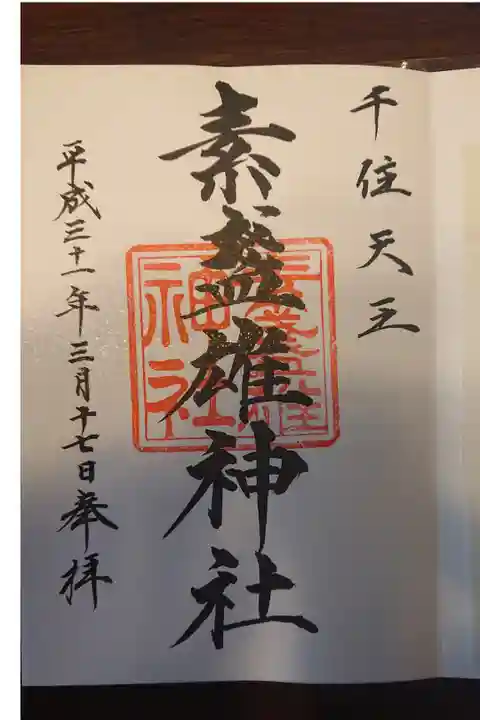 千住天王
素盞雄神社
平成三十一年三月十七日奉拝